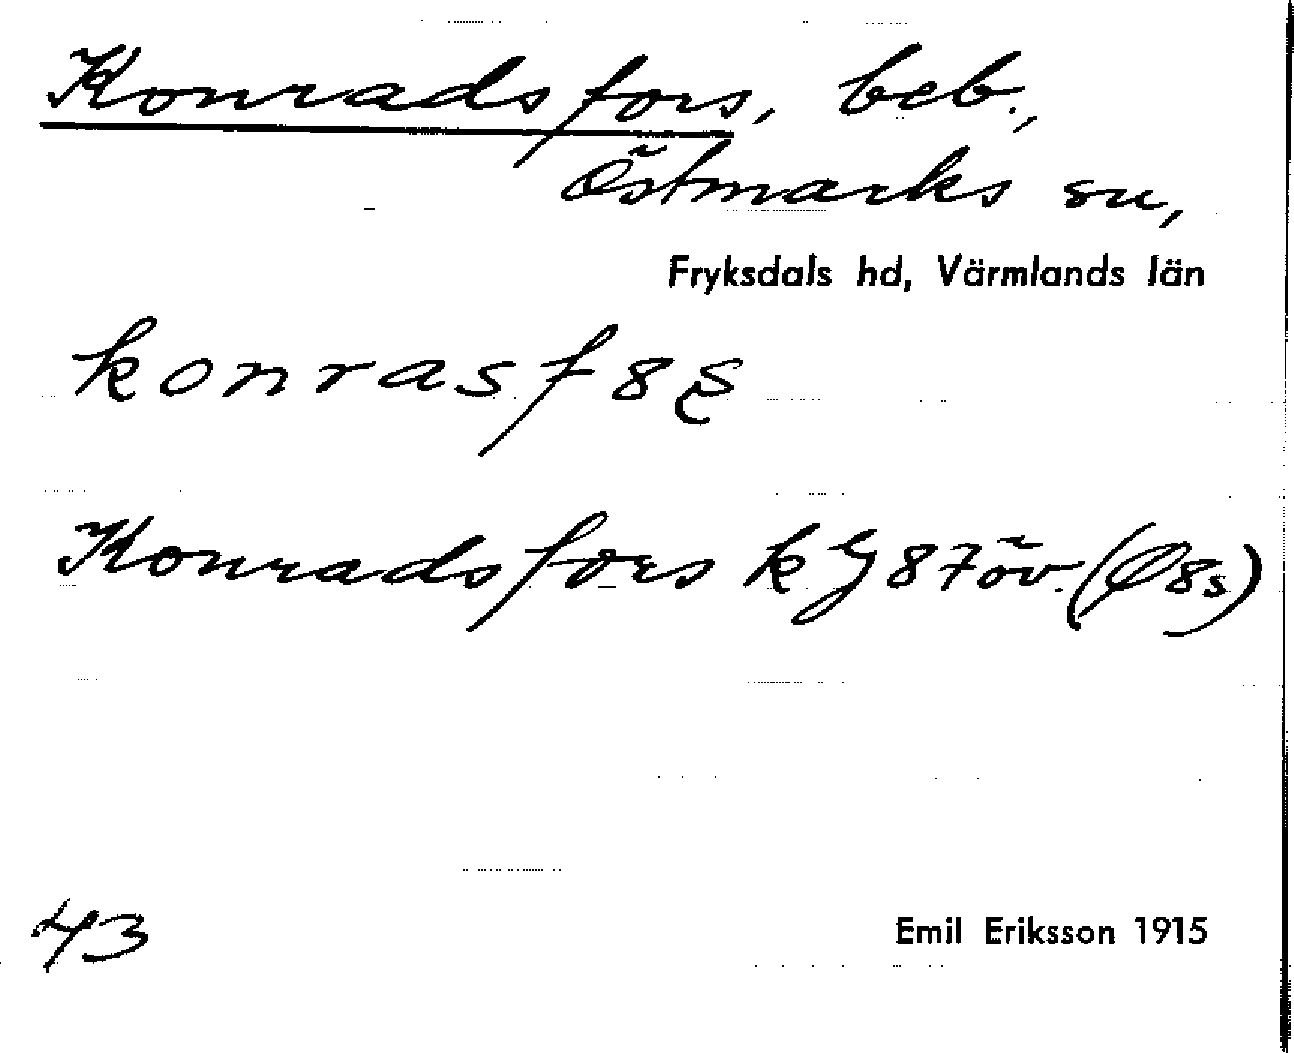 Konradsfors, beb.,
Östmarks sn,
Fryksdals hd, Värmlands län
konrasf8s̨
Konradsfors k G87öv. (Ø8s)
43
Emil Eriksson 1915